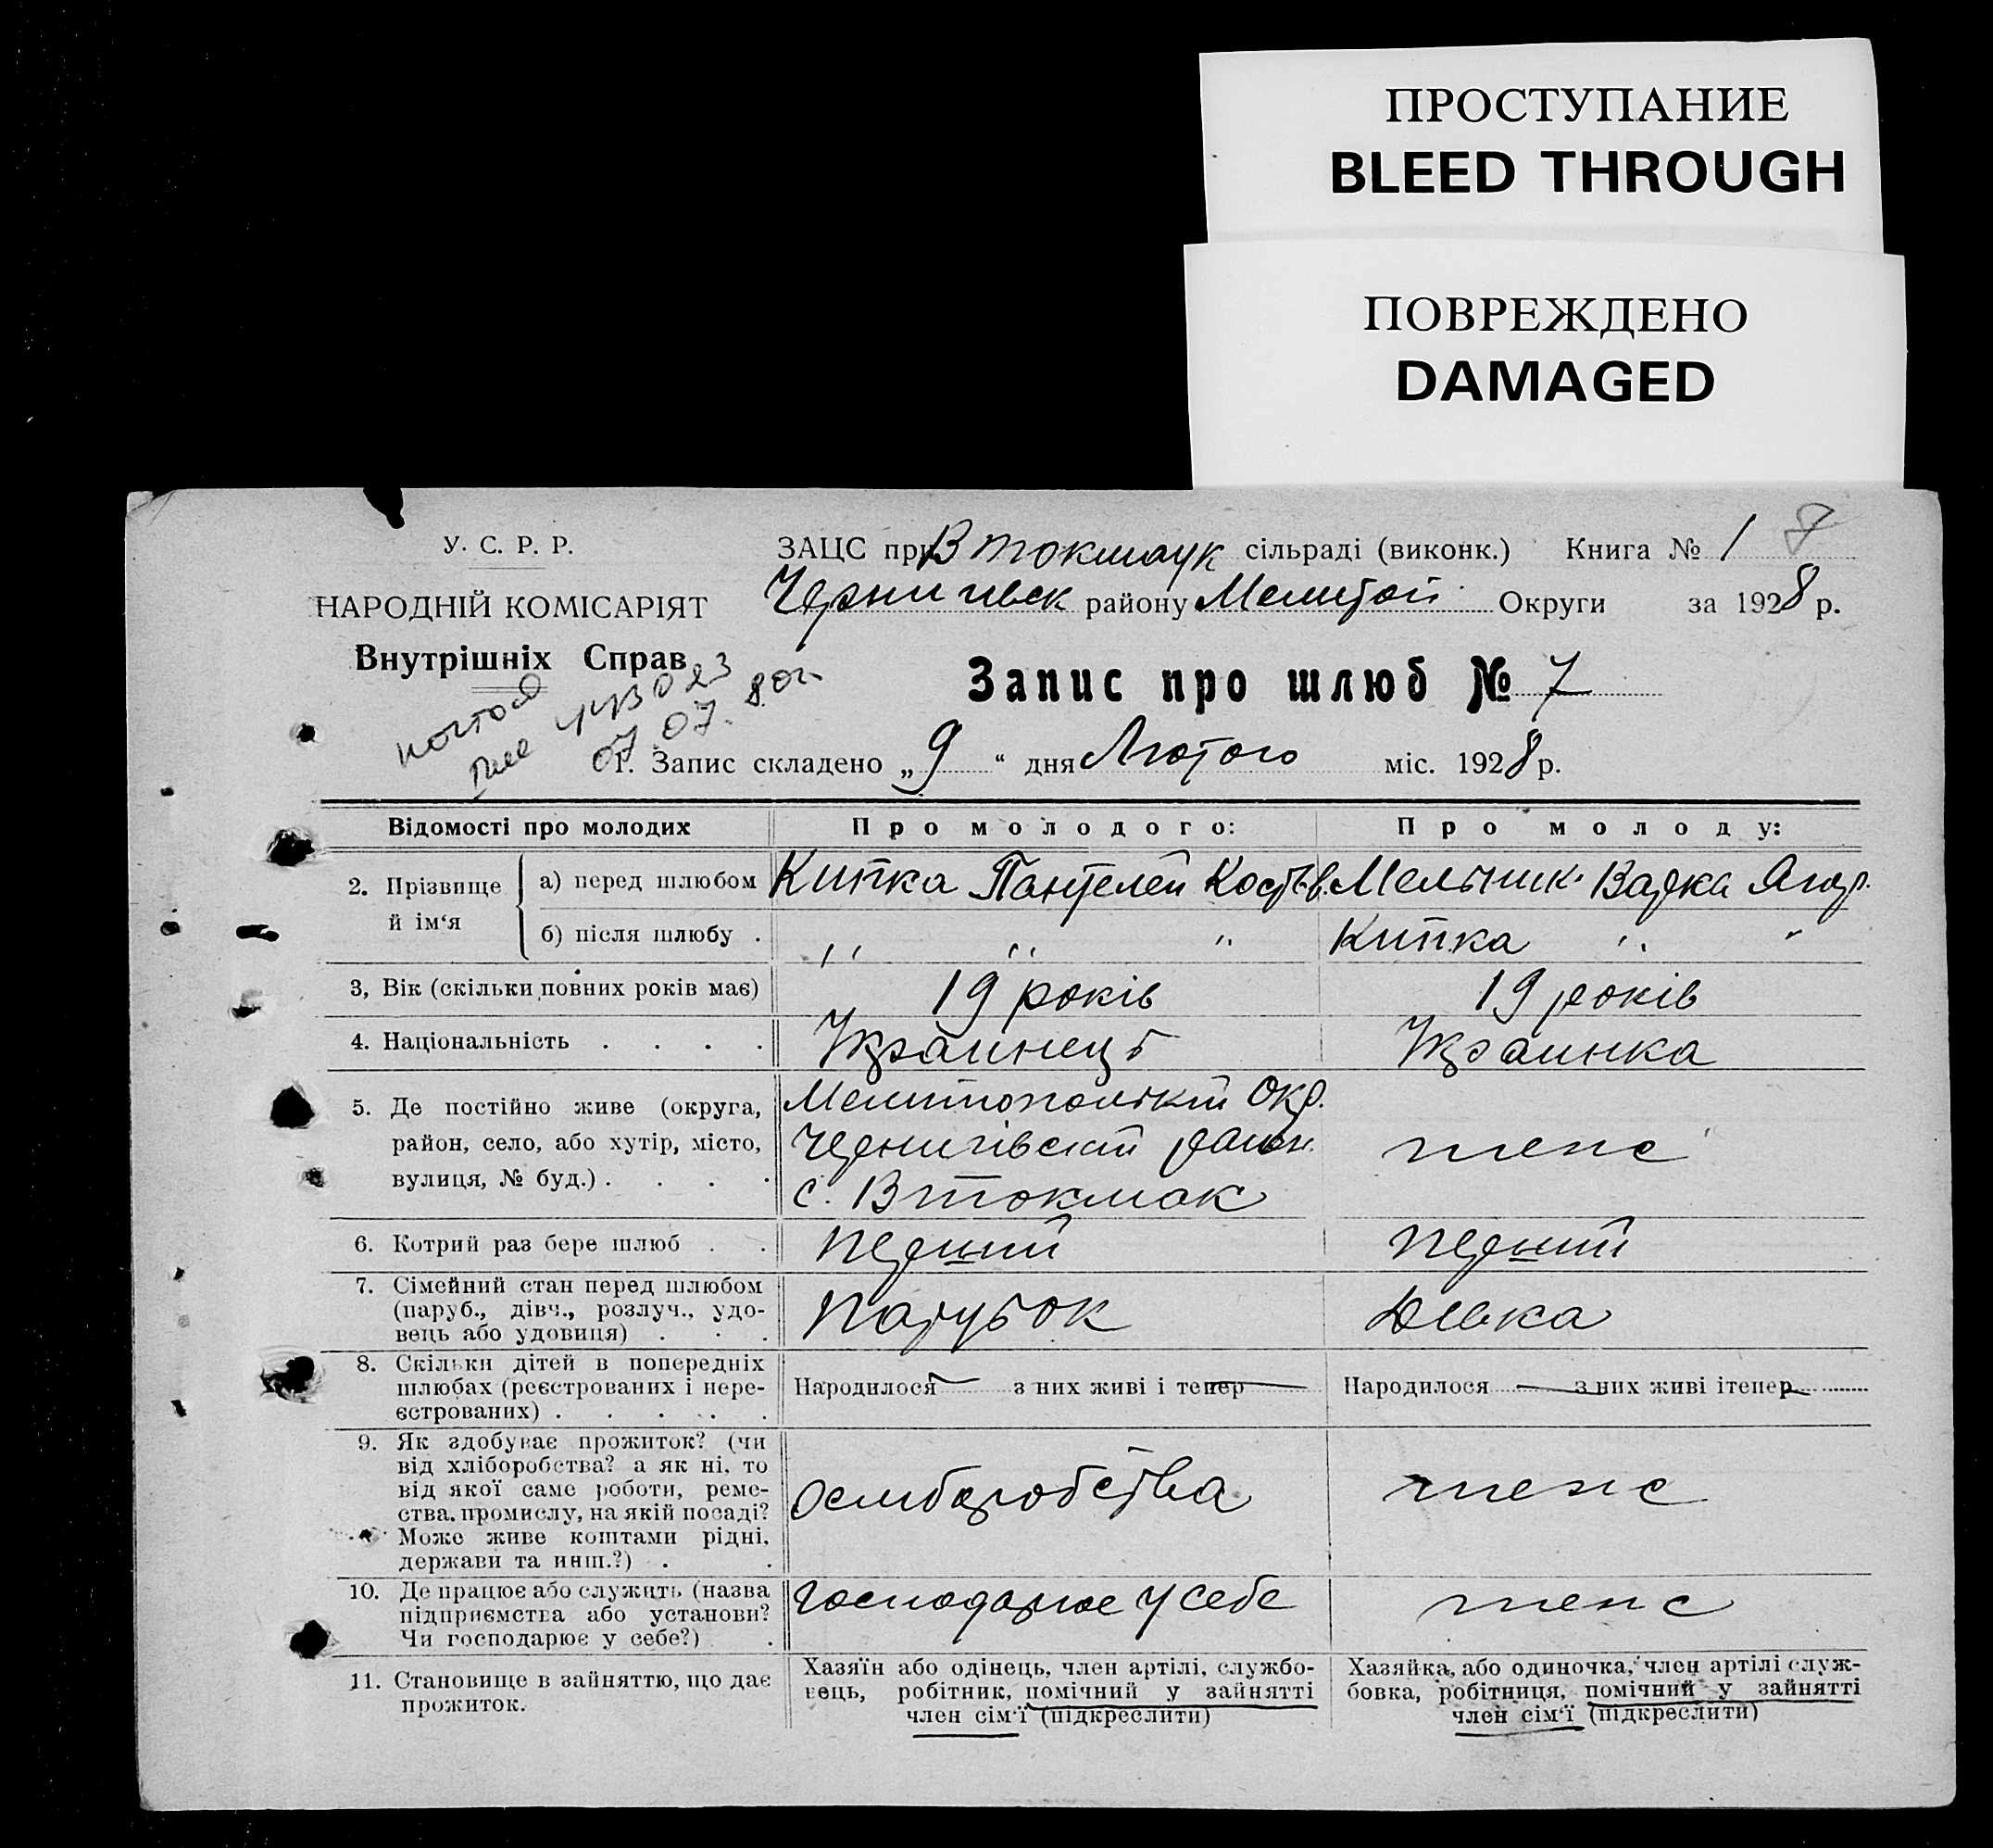 ПРОСТУПАНИЕ
BLEED THROUGH
ПОВРЕЖДЕНО
DAMAGED
У. С. Р. Р.
НАРОДНІЙ КОМІСАРІЯТ
Внутрішніх Справ
ЗАЦС при В Токмаук сільраді (виконк.) Книга № 1 8
Чернигівск району Мелитоп Округи за 1928 р.
Запис про шлюб № 7
07.07.80г.
1. Запис складено „9“ дня Лютого міс. 1928 р.
Відомості про молодих Про молодого: Про молоду:
2. Прізвище й ім'я
а) перед шлюбом Кипка Пантелей Костьв. Мельник Варка Ягор.
б) після шлюбу . ,, ,, ,, Кипка ,, ,,
3, Вік (скільки повних років має) 19 років 19 років
4. Національність . . . . Украинець Украинка
5. Де постійно живе (округа,
район, село, або хутір, місто,
вулиця, № буд.) . . . .
Мелитопольскій Окр.
Чернигівскій район.
с. В Токмак
тепс
6. Котрий раз бере шлюб . . перший перший
7. Сімейний стан перед шлюбом
(паруб., дівч., розлуч., удо-
вець або удовиця) . . .
парубок дівка
8. Скільки дітей в попередніх
шлюбах (реєстрованих і нере-
єстрованих) . . . . .
Народилося — з них живі і тепер — Народилося — з них живі ітепер —
9. Як здобуває прожиток? (чи
від хліборобства? а як ні, то
від якої саме роботи, реме-
ства, промислу, на якій посаді?
Може живе коштами рідні,
держави та инш.?) . .
тепс
10. Де працює або служить (назва
підприємства або установи?
Чи господарює у себе?) .
господарює у себе тепс
11. Становище в зайняттю, що дає
прожиток.
Хазяїн або одінець, член артілі, службо-
вець, робітник, помічний у зайнятті
член сім'ї (підкреслити)
Хазяйка, або одиночка, член артілі служ-
бовка, робітниця, помічний у зайнятті
член сім'ї (підкреслити)